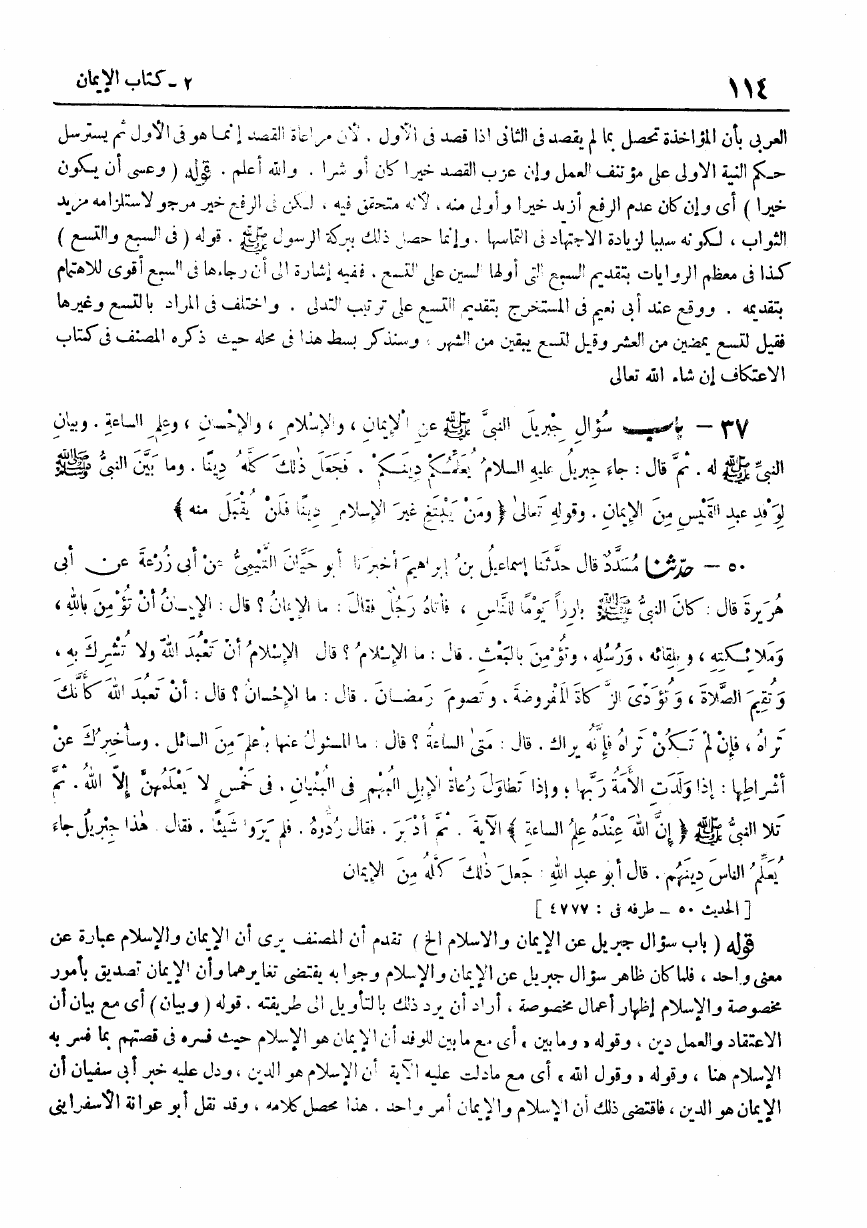 ١١٤
٢ - كتاب الإيمان
العربى بأن المؤاخذة تحصل بما لم يقصد فى الثانى اذا قصد فى الأول . لأن مراعاة القصد إنما هو فى الأول ثم يسترسل
حكم النية الاولى على مؤتنف العمل وإن عزب القصد خيرا كان أو شرا . والله أعلم . قوله ( وعسى أن يكون
خيرا ) أى وإن كان عدم الرفع أزيد خيرا وأولى منه ، لأنه متحقق فيه ، لكن فى الرفع خير مرجو لاستلزامه مزيد
الثواب ، لكونه سببا لزيادة الاجتهاد فى التماسها . وإنما حصل ذلك ببركة الرسول ﷺ . قوله ( فى السبع والتسع )
كذا فى معظم الروايات بتقديم السبع التى أولها السين على التسع . ففيه إشارة الى أن رجاءها فى السبع أقوى للاهتمام
بتقديمه . ووقع عند أبى نعيم فى المستخرج بتقديم التسع على ترتيب التدلى . واختلف فى المراد بالتسع وغيرها
فقيل لتسع يمضين من العشر وقيل لتسع يبقين من الشهر ؛ وسنذكر بسط هذا فى محله حيث ذكره المصنف فى كتاب
الاعتكاف إن شاء الله تعالى
٣٧ - بابــ سُؤالِ جِبريلَ النبىَّ ﷺ عنِ الْإيمانِ ، والإسْلامِ ، والإحْسانِ ، وعِلمِ الساعةِ . وبيانِ
النبىِّ ﷺ له . ثمَّ قال : جاءَ جِبريلُ عليهِ السلامُ يُعَلِّمُكُمْ دِينَكمْ . فَجَعَلَ ذٰلكَ كلَّهُ دِينًا . وما بَيَّنَ النبىُّ ﷺ
لِوَفْدِ عبدِ القَيْسِ مِنَ الإيمانِ . وقولهِ تَعالىٰ ﴿ ومَنْ يَبْتَغِ غيرَ الإسلامِ دِينًا فَلَنْ يُقْبَلَ منه ﴾
٥٠ - حدّثنا مُسَدَّدٌ قال حدَّثَنا إسماعيلُ بنُ إبراهيمَ أخبرَنا أبو حَيَّانَ التَّيْمِىُّ عنْ أبى زُرْعةَ عن أبى
هُرَيرةَ قال : كانَ النبىُّ ﷺ بارِزاً يَوْمًا لِلنَّاسِ ، فأتاهُ رَجُلٌ فقالَ : ما الإيمانُ ؟ قال : الإيمـانُ أنْ تُؤْمِنَ باللهِ ،
وَمَلائِـكتِهِ ، وبِلِقائه ، وَرُسُلِهِ ، وتُؤْمِنَ بالبَعْثِ . قال : ما الإسْلامُ ؟ قال الإسْلامُ أنْ تَعْبُدَ اللهَ ولا تُشْرِكَ بِهِ ،
وَتُقِيمَ الصَّلاةَ ، وَتُؤدِّىَ الزَّكاةَ المفْروضةَ ، وتصومَ رَمضـانَ . قال : ما الإحْسانُ ؟ قال : أنْ تَعبُدَ اللهَ كأنَّكَ
تَراهُ ، فإنْ لمْ تَـكُنْ تَراهُ فإنَّه يراك . قال : مَتىٰ الساعةُ ؟ قال : ما المسئولُ عنها بأعْلمَ مِنَ السائل . وسأخبِرُكَ عنْ
أشراطِها : إذا وَلَدَتِ الأمَةُ ربَّها ؛ وإذا تَطاوَلَ رُعاةُ الإبلِ البُهْمِ فى البُنْيانِ . فى خَمْسٍ لا يَعْلَمُهنَّ إلَّا اللهُ . ثمَّ
تلا النبىُّ ﷺ ﴿ إنَّ اللهَ عِنْدَهُ عِلمُ الساعةِ ﴾ الآيةَ . ثمَّ أدْبَرَ . فقال رُدُّوهُ . فلم يَرَوا شَيئًا . فقال : هٰذا جِبْريلُ جاءَ
يُعَلِّمُ الناسَ دِينَهُم . قال أبو عبدِ اللهِ : جَعلَ ذٰلكَ كلَّهُ مِنَ الإيمان
[ الحديث ٥٠ - طرفه فى : ٤٧٧٧ ]
قوله ( باب سؤال جبريل عن الإيمان والاسلام الخ ) تقدم أن المصنف يرى أن الإيمان والإسلام عبارة عن
معنى واحد ، فلما كان ظاهر سؤال جبريل عن الإيمان والإسلام وجوابه يقتضى تغايرهما وأن الإيمان تصديق بأمور
مخصوصة والإسلام إظهار أعمال مخصوصة ، أراد أن يرد ذلك بالتأويل الى طريقته . قوله ( وبيان ) أى مع بيان أن
الاعتقاد والعمل دين ، وقوله « وما بين » أى مع ما بين للوفد أن الإيمان هو الإسلام حيث فسره فى قصتهم بما فسر به
الإسلام هنا ، وقوله « وقول الله » أى مع مادلت عليه الآية أن الإسلام هو الدين ، ودل عليه خبر أبى سفيان أن
الإيمان هو الدين ، فاقتضى ذلك أن الإسلام والإيمان أمر واحد . هذا محصل كلامه ، وقد نقل أبو عوانة الأسفراينى